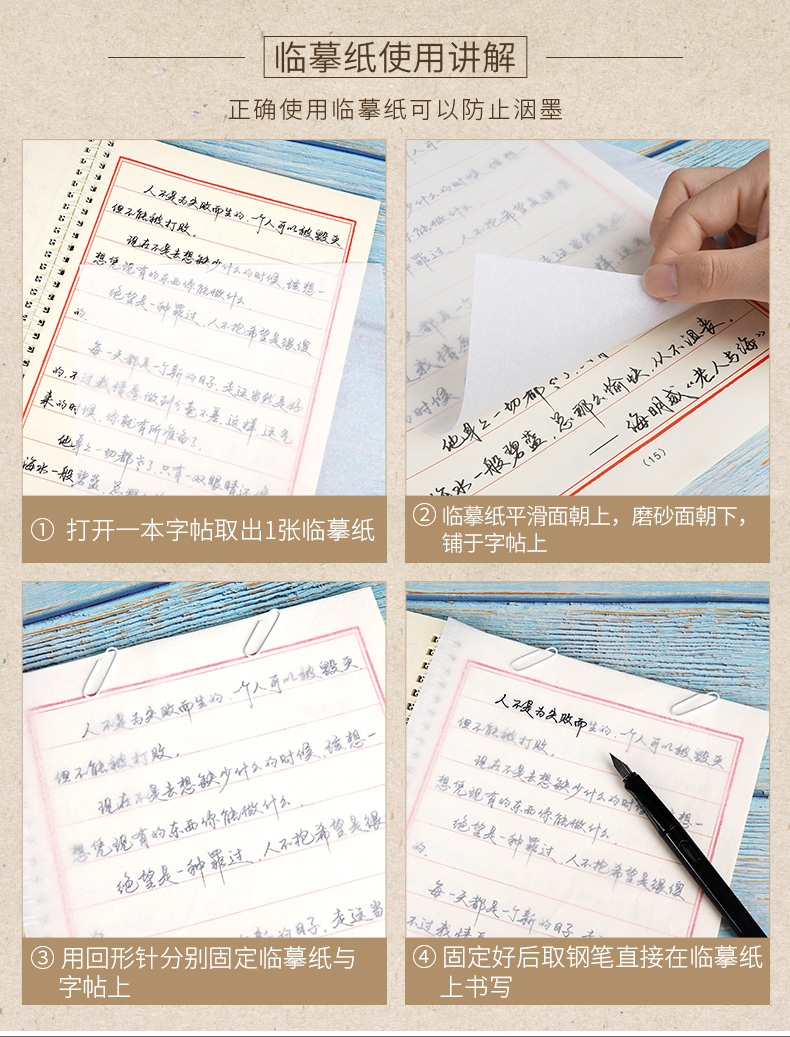 临摹纸使用讲解
正确使用临摹纸可以防止洇墨
人不是为失败而生的,一个人可以被毁灭
但不能被打败。
现在不是去想缺少什么的时候,该想一
想凭现有的东西你能做什么
绝望是一种罪过,人不抱希望是很傻
的。
每一天都是一个新的日子。走运当然是好
的,不过我情愿做到分毫不差。这样,运气
来的时候,你就有所准备了。
他身上一切都
只有一双眼睛
海水一般碧蓝,总那
什么的时候,该想
一切都
他身上一切都
海水一般碧蓝,总那么愉快,从不沮丧。
——海明威《老人与海》
(15)
① 打开一本字帖取出1张临摹纸
② 临摹纸平滑面朝上，磨砂面朝下，
铺于字帖上
人不是为失败而生的,一个人可以被毁灭
但不能被打败。
现在不是去想缺少什么的时候,该想一
想凭现有的东西你能做什么。
绝望是一种罪过,人不抱希望是很
一个新的日子。走运当
人不是为失败而生的,一个人可以被毁灭
但不能被打败。
现在不是去想缺少什么的时候,该想一
想凭现有的东西你能做什么。
绝望是一种罪过,人不抱希望是很傻
的。
每一天都是一个新的日子。走
不过我情
③ 用回形针分别固定临摹纸与
字帖上
④ 固定好后取钢笔直接在临摹纸
上书写